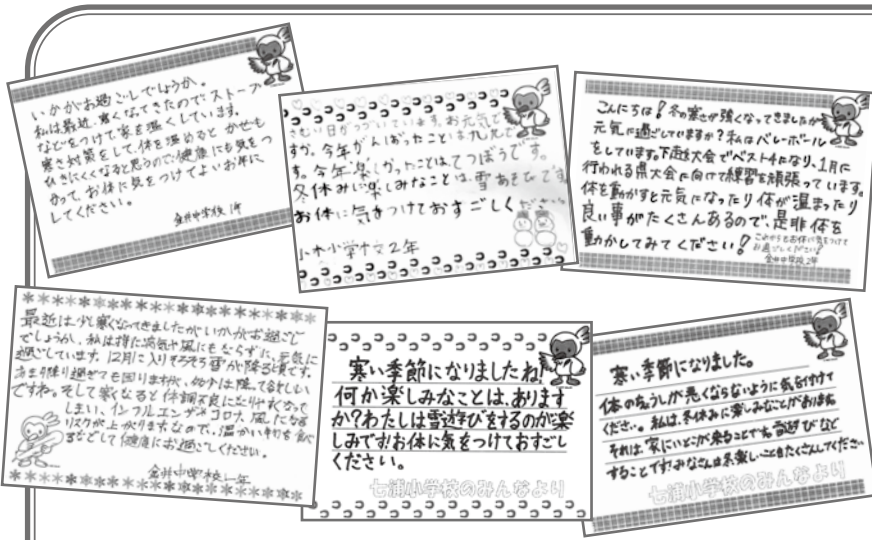 いかがお過ごしでしょうか。
私は最近、寒くなってきたので、ストーブ
などをつけて家を温くしています。
寒さ対策をして、体を温めると かぜも
ひきにくくなると思うので、健康にも気をつ
かって、お体に気をつけてよいお年に
してください。
金井中学校 1年
さむい日がつづいています。お元気で
すか。今年がんばったことは九九で
す。今年楽しかったことはてつぼうです。
冬休みに楽しみなことは、雪あそびです
お体に気をつけておすごしください。
小学校2年
こんにちは!冬の寒さが強くなってきましたが
元気に過ごしていますか?私はバレーボール
をしています。下越大会でベスト4になり、1月に
行われる県大会に向けて練習を頑張っています。
体を動かすと元気になったり体が温まったり
良い事がたくさんあるので、是非体を
動かしてみてください!
これからもお体に気をつけて
お過ごしください!
金井中学校 2年
最近は少し寒くなってきましたがいかがお過ごし
でしょうか。私は特に病気や風にもならずに、元気に
過ごしています。12月に入りそろそろ雪が降る頃です。
あまり降り過ぎても困りますが、始めは降って欲しい
ですね。そして寒くなると体調不良になりやすくなって
しまい、インフルエンザやコロナ、風になる
リスクが上がりますなので、温かい物を食べ
るなどして健康にお過ごしください。
金井中学校一年
寒い季節になりましたね!
何か楽しみなことは、あります
か?わたしは雪遊びをするのが楽
しみです!お体に気をつけておすごし
ください。
七浦小学校のみんなより
寒い季節になりました。
体のちょうしが悪くならないように気を付けて
ください。私は、冬休みに楽しみなことがあります
それは、家にいとこが来ることです。雪遊びなど
することです!みなさんは
楽しいことをたくさんしてください
七浦小学校のみんなより